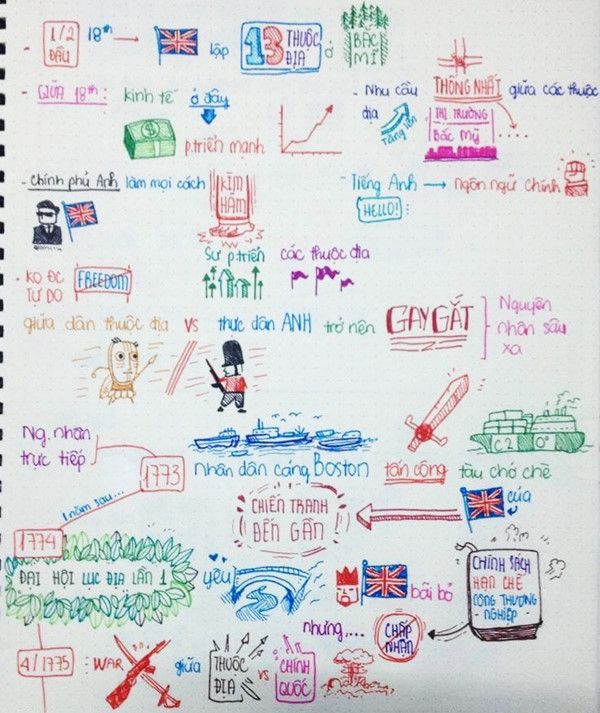 - 1/2 ĐẦU 18th → lập 13 THUỘC ĐỊA ở BẮC MĨ
- GIỮA 18th: kinh tế ở đây
p.triển mạnh
- Nhu cầu THỐNG NHẤT giữa các thuộc
địa Tăng lên THỊ TRƯỜNG
Bắc Mỹ ....
- Chính phủ Anh làm mọi cách KÌM HÃM
Sự p.triển các thuộc địa
- Tiếng Anh → ngôn ngữ chính
HELLO! :
- KO ĐC TỰ DO FREEDOM
giữa dân thuộc địa VS thực dân ANH trở nên GAY GẮT
Nguyên nhân sâu xa
Ng. nhân trực tiếp
1773 nhân dân cảng Boston tấn công tàu chở chè
của
1 năm sau...
CHIẾN TRANH ĐẾN GẦN!
1774
ĐẠI HỘI LỤC ĐỊA LẦN 1 yêu bãi bỏ
CHÍNH SÁCH
HẠN CHẾ
CÔNG THƯƠNG
- NGHIỆP -
nhưng.... CHẤP NHẬN
4/1775: WAR giữa THUỘC ĐỊA VS CHÍNH QUỐC